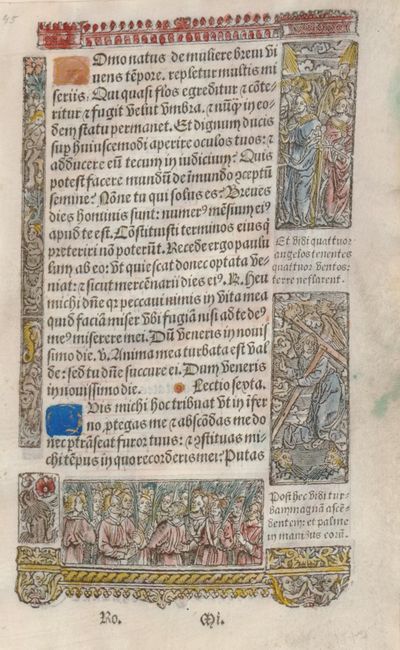 45
Omo natus de muliere brevi vi
vens tēpore. repletur multis mi
seriis: Qui quasi flos egreditur ⁊ cōte-
ritur ⁊ fugit velut vmbra. ⁊ nūq̄ in eo-
dem statu permanet. Et dignum ducis
sup huiuscemodi aperire oculos tuos: ⁊
adducere eū tecum in iudicium? Quis
potest facere mundū de īmundo ɔceptū
semine? Nōne tu qui solus es? Breues
dies hominis sunt: numerꝰ mēsium eiꝰ
apud te est. Cōstituisti terminos eiusq̄
preteriri nō poterūt. Recede ergo paulu
lum ab eo: vt quiescat donec optata ve-
niat: ⁊ sicut mercēnarii dies eiꝰ. R. Heu
michi dn̄e qr peccaui nimis in vita mea
quid faciā miser vbi fugiā nisi ad te deꝰ
meꝰ miserere mei. Dū veneris in nouis
simo die. v. Anima mea turbata est val
de: sed tu dn̄e succure ei. Dum veneris
in nouissimo die. Lectio sexta.
Uis michi hoc tribuat vt in ifer
no ꝓtegas me ⁊ abscōdas me do
nec ptrāseat furor tuus: ⁊ ɔstituas mi-
chi tēpus in quo recorderis mei? Putas
Et vidi quattuor
angelos tenentes
quattuor ventos:
terre ne flarent.
Post hec vidi tur-
bam magnā ascē-
dentem: et palme
in manibus eorū.
Ro. Mi.